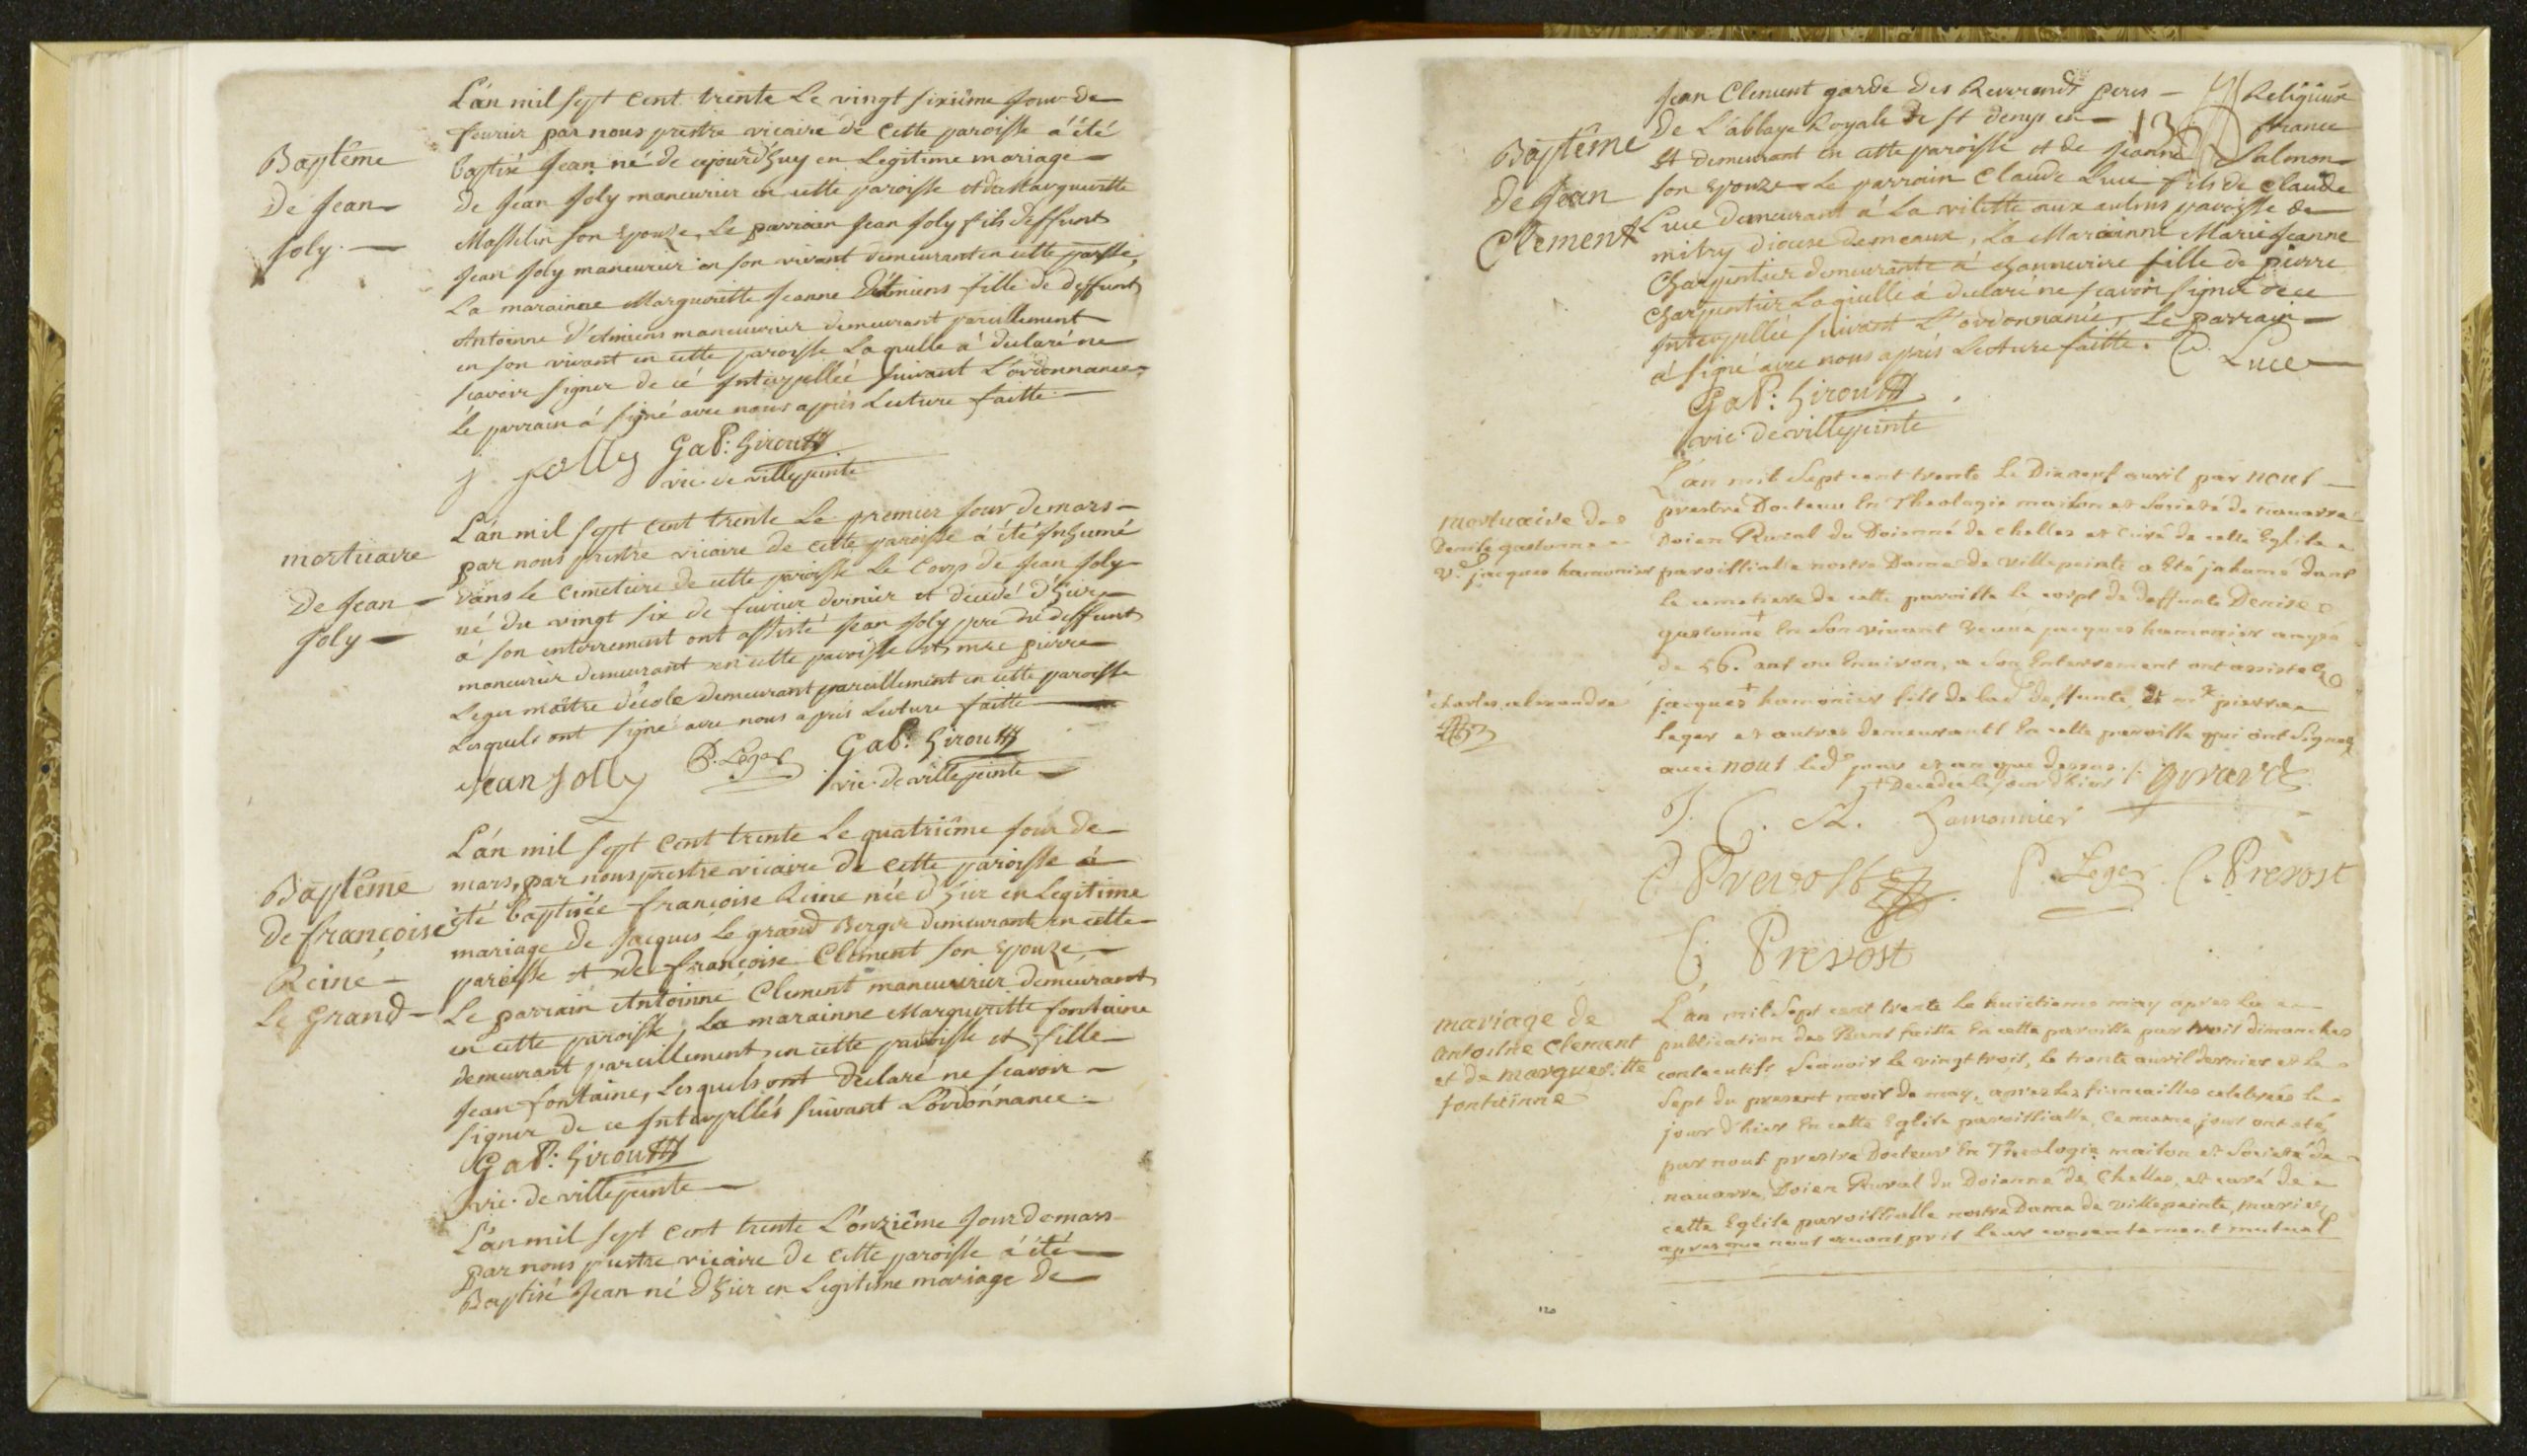 Baptême
De Jean
Joly.
L'an mil sept cent trente Le vingt sixiême jour de
fevrier par nous prestre vicaire de cette paroisse a été
baptisé Jean né de cejourd'huy en Legitime mariage
de Jean Joly maneuvrier en cette paroisse et de Margueritte
Masselin son Epouse, Le parrain Jean Joly fils deffunt
Jean Joly maneuvrier en son vivant demeurant en cette parsse,
La marainne Margueritte Jeanne D'Amiens fille de deffunt
Antoinne D'Amiens maneuvrier demeurant pareillement
en son vivant en cette paroisse Laquelle a declaré ne
scavoir signer de ce Interpellée suivant L'ordonnance
Le parrain a signé avec nous après Lecture faitte
J Jolly Gab: Giroust
vic. de villepeinte
mortuaire
De Jean
Joly
L'an mil sept cent trente Le premier jour de mars
par nous prestre vicaire de cette paroisse a été Inhumé
dans le Cimetiere de cette paroisse Le Corps de Jean Joly
né du vingt six de fevrier dernier et decedé d'hier
a son enterrement ont assisté Jean Joly pere du deffunt
maneuvrier demeurant en cette paroisse et mre pierre
Leger maître d'école demeurant pareillement en cette paroisse
Lesquels ont signé avec nous après Lecture faitte
Jean Jolly P. Leger Gab: Giroust
vic. de villepeinte
Baptême
De françoise
Reine
Le Grand
L'an mil sept cent trente Le quatriême jour de
mars, par nous prestre vicaire de cette paroisse a
été baptisée françoise Reine née d'hier en Legitime
mariage de Jacques Le grand Berger demeurant en cette
paroisse et de françoise Clement son Epouze,
Le parrain Antoinne Clement maneuvrier demeurant
en cette paroisse, La marainne Margueritte fontaine
demeurant pareillement en cette paroisse et fille
Jean fontaine, Lesquels ont declaré ne scavoir
signer de ce Interpellés suivant L'ordonnance.
Gab: Giroust
vic. de villepeinte
L'an mil sept cent trente L'onziême jour de mars
par nous prestre vicaire de cette paroisse a été
Baptisé Jean né d'hier en Legitime mariage de
Baptême
De Jean
Clement
Jean Clement garde des Reverends peres Religieux
De L'abbaye Royale de st denys en france
et demeurant en cette paroisse et de Jeanne Salmon
son Epouze Le parrain Claude Luce fils de Claude
Luce demeurant a La vilette aux aulnes paroisse de
mitry diocese demeaux, La Marainne Marie Jeanne
Charpentier demeurante a fille de pierre
Charpentier Laquelle a declaré ne scavoir signer de ce
Interpellée suivant L'ordonnance, Le parrain
a signé avec nous après Lecture faitte. C. Luce
Gab: Giroust
vic. de villepeinte
mortuaire de
Denise gastonne
Ve. jacques hamonier
L'an mil Sept cent trente le Dixneuf avril par nous
prestre Docteur En Theologie maison et Societé de navarre
Doien Rural du Doienné de Chelles et Curé de cette Eglise
paroissialle nostre Dame de villepeinte a Eté inhumé dans
le cemetiere de cette paroisse le corps de deffunte Denise
gastonne En Son vivant Veuve jacques hamonier aagée
de 56. ans ou Environ, a Son Enterrement ont assisté
charles alexandre
jacques + hamonier fils de lad. deffunte, et mre pierre
Leger et autres demeurants En cette paroisse qui ont Signé
avec nous led. jour et an que dessus ./.
+ Decedée le jour d'hier
J. C. A. hamonnier
C Prevost P. Leger C. Prevost
C. Prevost
mariage de
antoine Clement
et de margueritte
fontainne
L'an mil Sept cent trente le huictieme may apres la
publication des Bans faitte En cette paroisse par trois dimanches
consecutifs Scavoir le vingt trois, le trente avril dernier et le
Sept du present mois de may, apres les fiancailles celebrées le
jour d'hier En cette Eglise paroissialle, ce meme jour ont eté
par nous prestre Docteur En Theologie maison et Societé de
navarre, Doien Rural du Doienné de Chelles, et curé de
cette Eglise paroissialle nostre Dame de villepeinte, mariés
apres que nous avons pris leur consentement mutuel
120